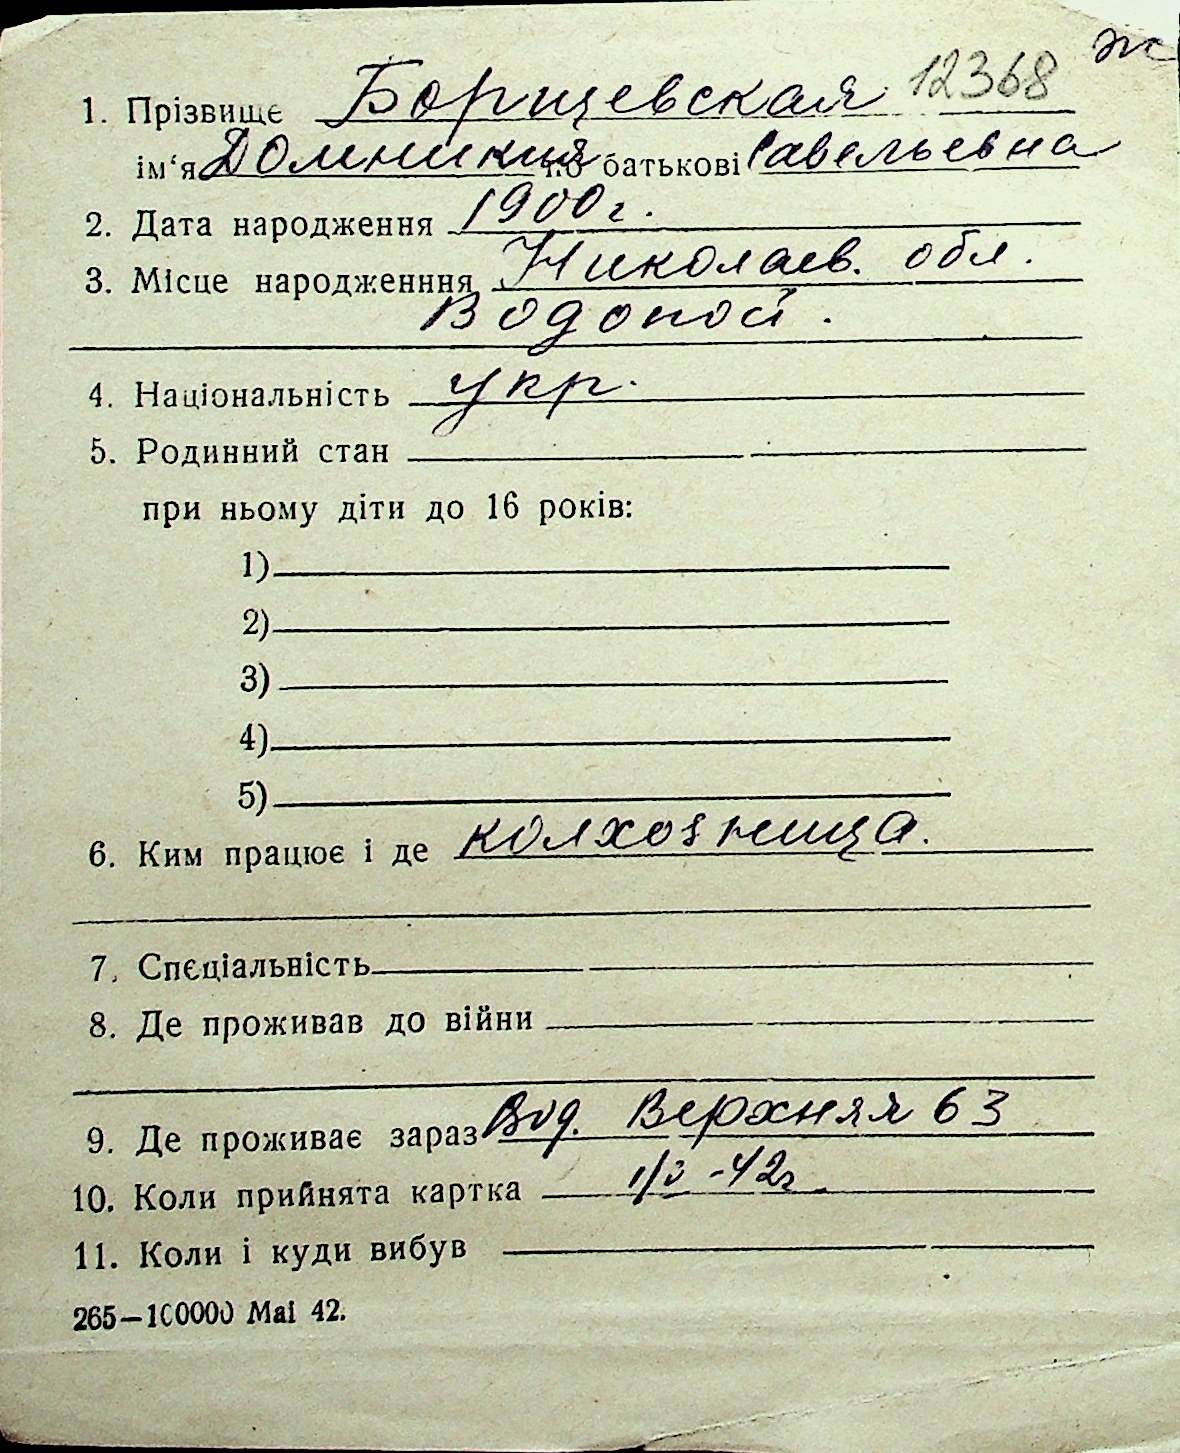 ж
1. Прізвище Борщевская 12368
ім‘я Домникия по батькові Савельевна
2. Дата народження 1900 г.
3. Місце народженння Николаев. обл.
Водопой.
4. Національність укр.
5. Родинний стан
при ньому діти до 16 років:
1)
2)
3)
4)
5)
6. Ким працює і де колхозница.
7. Спєціальність
8. Де проживав до війни
9. Де проживає зараз Вод. Верхняя 63
10. Коли прийнята картка -42г
11. Коли і куди вибув
265—100000 Mai 42.